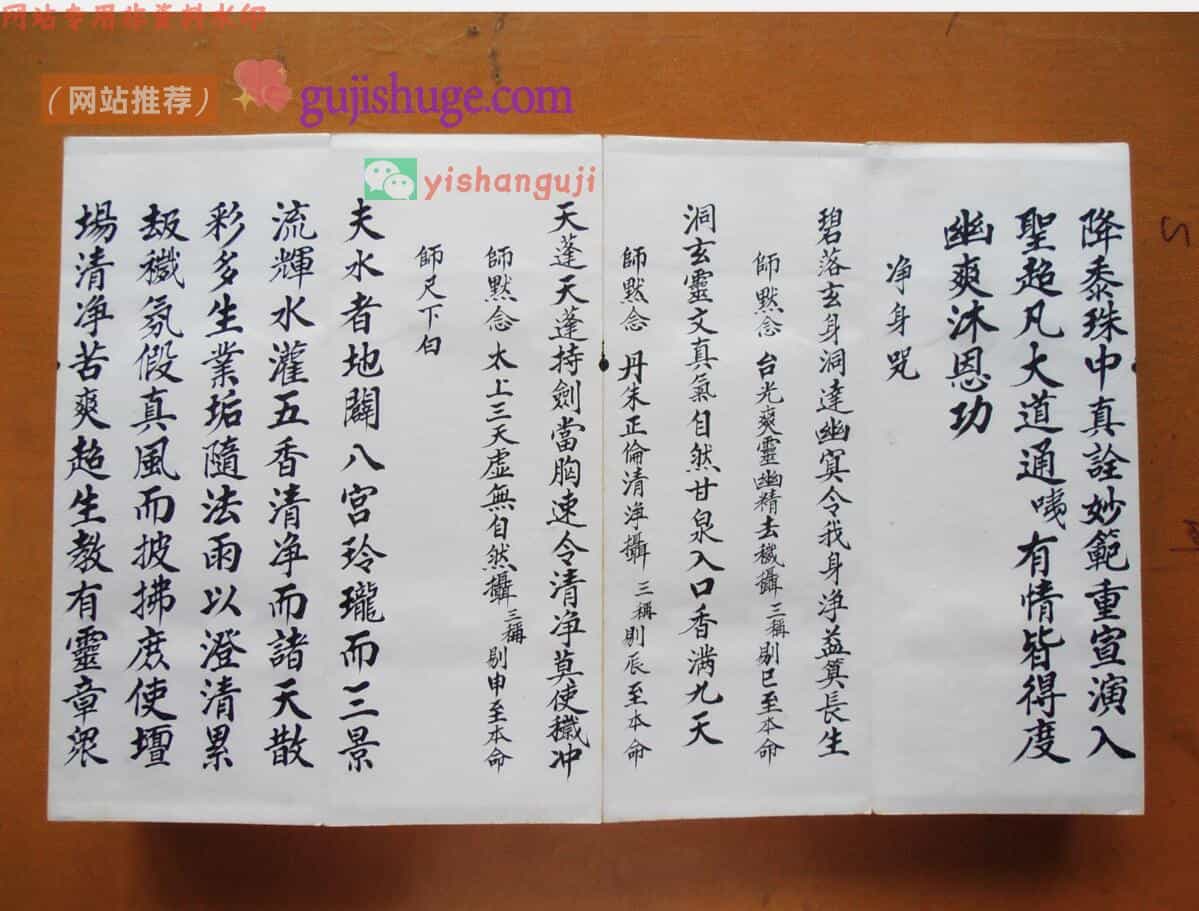 网站专用非资料水印
（网站推荐） gujishuge.com
yishanguji
降黍珠中真詮妙範重宣演入
聖超凡大道通咦有情皆得度
幽爽沐恩功
净身咒
碧落玄身洞達幽寞令我身净益筭長生
師默念 台光爽靈幽精去穢攝 三稱剔巳至本命
洞玄靈文真氣自然甘泉入口香满九天
師默念 丹朱正倫清净攝 三稱剔辰至本命
天蓬天蓬持劍當胸速令清净莫使穢冲
師默念 太上三天虚無自然攝 三稱剔申至本命
師尺下白
夫水者地闢八宮玲瓏而三景
流輝水灌五香清净而諸天散
彩多生業垢隨法雨以澄清累
刼穢氛假真風而披拂庶使壇
場清净苦爽超生教有靈章衆